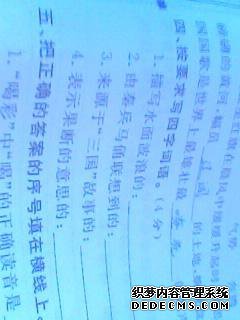 气势
磅礴的黄河
国国歌是世界上最雄壮最
四、按要求写四字词语。(4分)
1. 描写水面波浪的:
2. 由秦兵马俑联想到的:
3. 来源于“三国”故事的:
4. 表示果断的意思的:
五、把正确的答案的序号填在横线上。
1. “喝彩”中“喝”的正确读音是
织梦内容管理系统
DEDECMS.COM